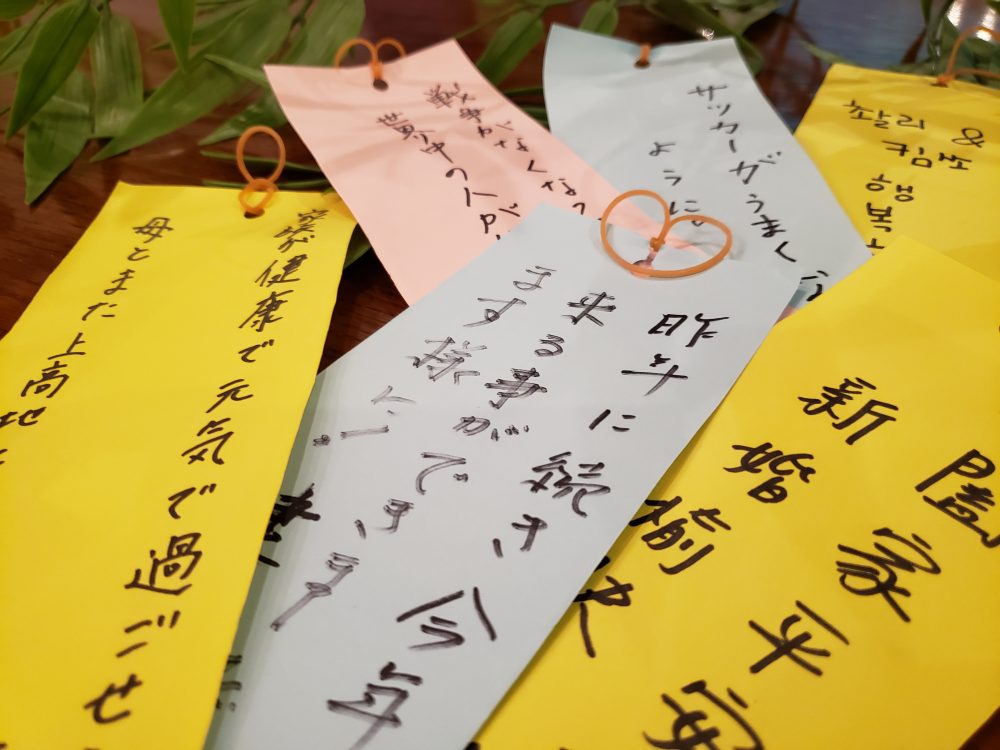 家族が健康で元気で過ごせ
母とまた上高地
戦争がなくな
世界中の人が
サッカーがうまく
ように
찰리 &
킴쏘
행복
昨年に続き今年
来る事ができます
ます様に
闔家平安
新婚愉快